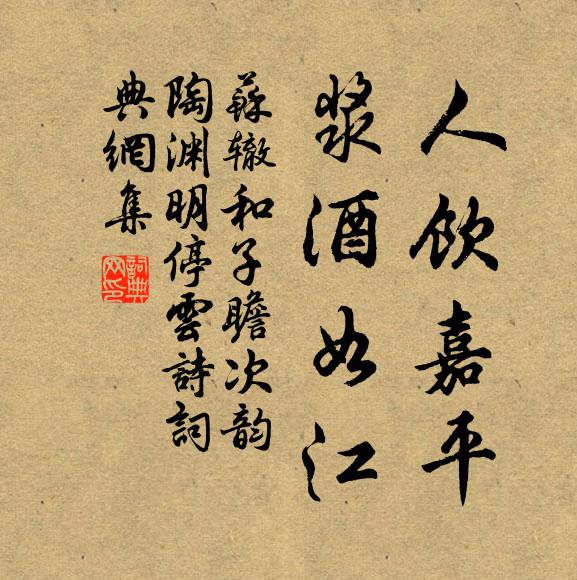 人飲嘉平
漿酒如江
蘇轍和子瞻次韵
陶渊明停雲詩詞
典網集
詞典网印